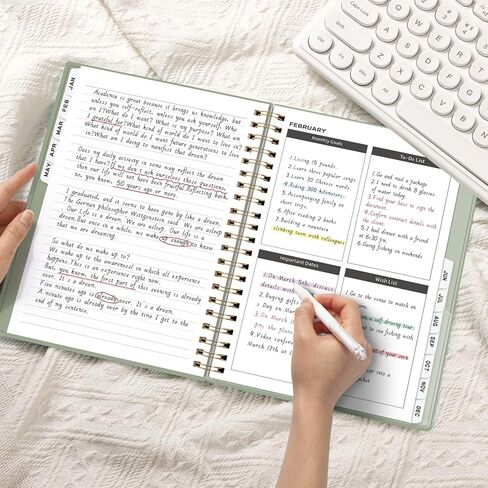 Academia is great because it brings us knowledge, but
unless you self-reflect, unless you ask yourself: Who
am I?What do I want? What is my purpose? What am
I grateful for?What kind of world do I want to live in?
What kind of world do I want future generations to live
in?What am I doing to manifest that dream?
Does my daily activity in some way reflect the dream
that I have?If we don't ask ourselves these questions,
then our life will not have been fruitful.Reflecting back,
so, you know, 50 years ago or more.
I graduated, and it seems to have gone by like a dream.
The German philosopher Wittgenstein said: We are asleep.
Our Life is a dream. We are asleep. Our life is a
dream.But once in a while, we wake up enough to know
that we are dreaming.
So what do we wake up to?
We wake up to the awareness in which all experience
happens.This is an experience right now.
But, you know, the first part of this evening is already
over. It's a dream.
Five minutes ago is already over. It's a dream.
A minute ago is already over by the time I get to the
end of my sentence.
JAN
FEB
MAR
APR
MAY
FEBRUARY
Monthly Goals
1. Losing 15 pounds
2. Learn three songs
3. Learn 30 Chinese words
4. Riding 300 kilometers
5. Accompanying family on
short trips
6. After reading 2 books
7. Building a mountain
climbing team with colleagues
To-Do List
1. Go and mail a package
2. I need to drink 8 glasses
of water today
3. Find your boss to sign the
document
4. Confirm contract details with
the client
5. I had dinner with a friend
at 6:30 pm
6. Going fishing on weekends
Important Dates
1. On March 5th, discuss
details with
2. Buying gifts
3. On March
pm, she plans
4. Video conference
March 17th at
Wish List
Go to the venue to watch an
self driving tour
go sea fishing with
of your own
car into a
JUN
JUL
AUG
SEP
OCT
NOV
DEC
Caps Lock
Shift